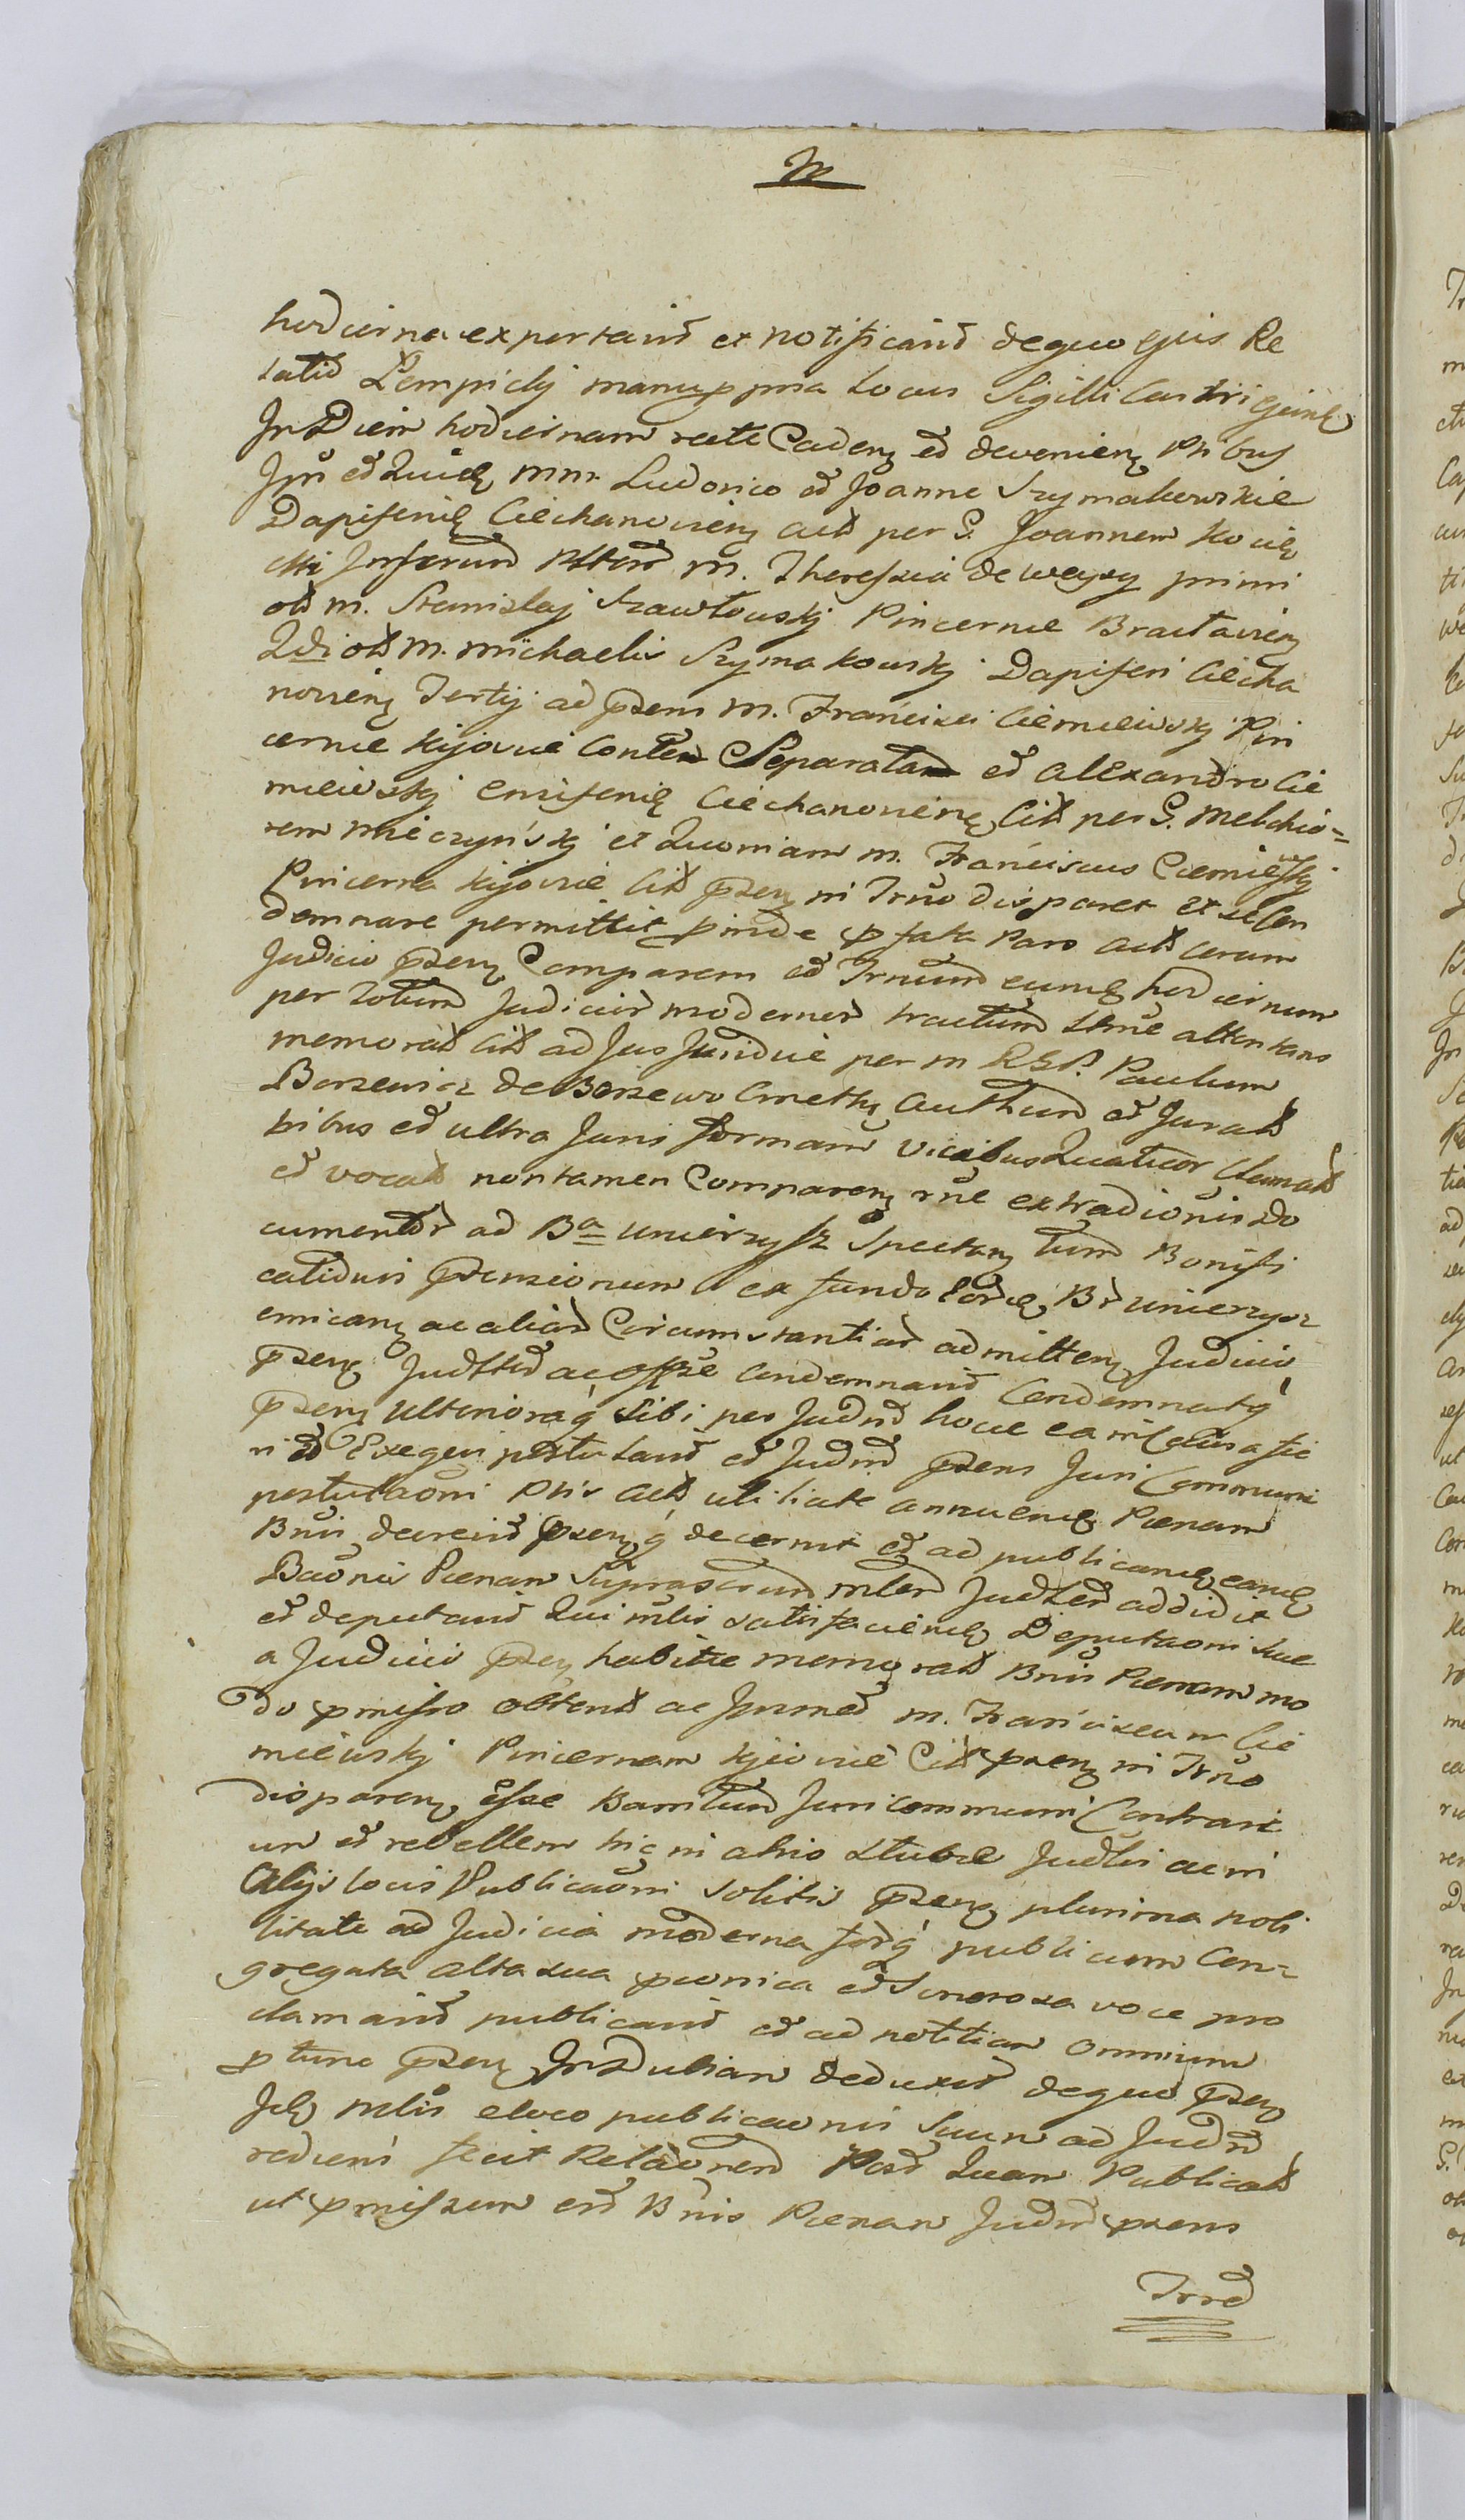 M
hodierna expertand et notificand dequo ejus Re
latio Lempicky manu ppria Locus Sigilli Castri ejusdę
In Diem hodiernam recte Cadenę et devenienę Ptibus
Ipń et Quidę mm. Ludovico et Joanne Szymakowskie
Dapiferidę Ciechanovienę actt per G. Joannem Kocię
cki Inferend m. Thereszia de Weysy primi
ott m. Stanislaj Szawłowskj Pincernæ Bracłavienę
2di ott m. Michaelis Szymakowskj Dapiferi Ciecha
novienę Tertij ad pżens m. Francisci Ciemniewskj Pin
cernæ Kijoviæ Conten Separatam et Alexandro Cie
mniewskj Ensiferidę Ciechanovienę Citt per G. Melchio=
rem Mieczyńskj et Quoniam m. Franciscus Ciemniewskj
Pincerna Kijoviæ Citt pżenę in Trno disparet et se Con
demnare permittit proinde pfata Pars actt coram
Judicio pżenę Comparens et Trnum eumdę hodiernum
per Totum Judicior modernor tractum Strue attentans
memoratt Citt ad Jus Juridice per m RGP. Paulum
Borzewicz de Borzewo Cmethę Authum et Juratt
tribus et ultra Juris formam vicibus Quatuor Clamatt
et vocatt non tamen Comparenę rne extradionis Do
cumentor ad Ba Unierzysz Spectanę tum Bonifi
cationis ptensionum ex fundo eordę Br Unierzysz
emicanę ac aliar Circumstantiar admittenę Judicio
pżenę Judtter ac offse Condemnavit Condemnatq
pżenę Ulteriora q Sibi per Judnd hocce ea in Causa fie
ri et Exequi postuland et Judnd pżens Juri Communi
postulaoni Ptis actt uti liciate annuendę Poenam
Bnis decrevit pżenę q decernit et ad publicandę eandę
Baonis Poenam Suprascrum mlem Judttem addidit
et deputavit Qui mlis satisfaciendę Deputaoni suæ
a Judicio pżenę habitæ memoratt Bnis Poenam mo
do pmisso obtentt ac Ipsummet m. Franciscum Cie
mniewskj Pincernam Kijoviæ Citt pżenę in Trno
disparenę esse Bannitum Juri communi Contrari
um et rebellem hic in atrio Stubæ Judttis ac in
Alijs locis Publicaoni solitis pżenę plurima nobi
litate ad Judicia moderna forq publicum Con=
gregata alta sua pconica et Sonorosa voce pro
clamavit publicavit et ad notitiam omnium
p tunc pżenę Indubiam deduxit dequo pżenę
Idę mlis eloco publicaonis Suum ad Judnd
rediens fecit Relaonem Post Quam Publicatt
ut pmissum est Bnis Poenam Judnd pżens
Trnd